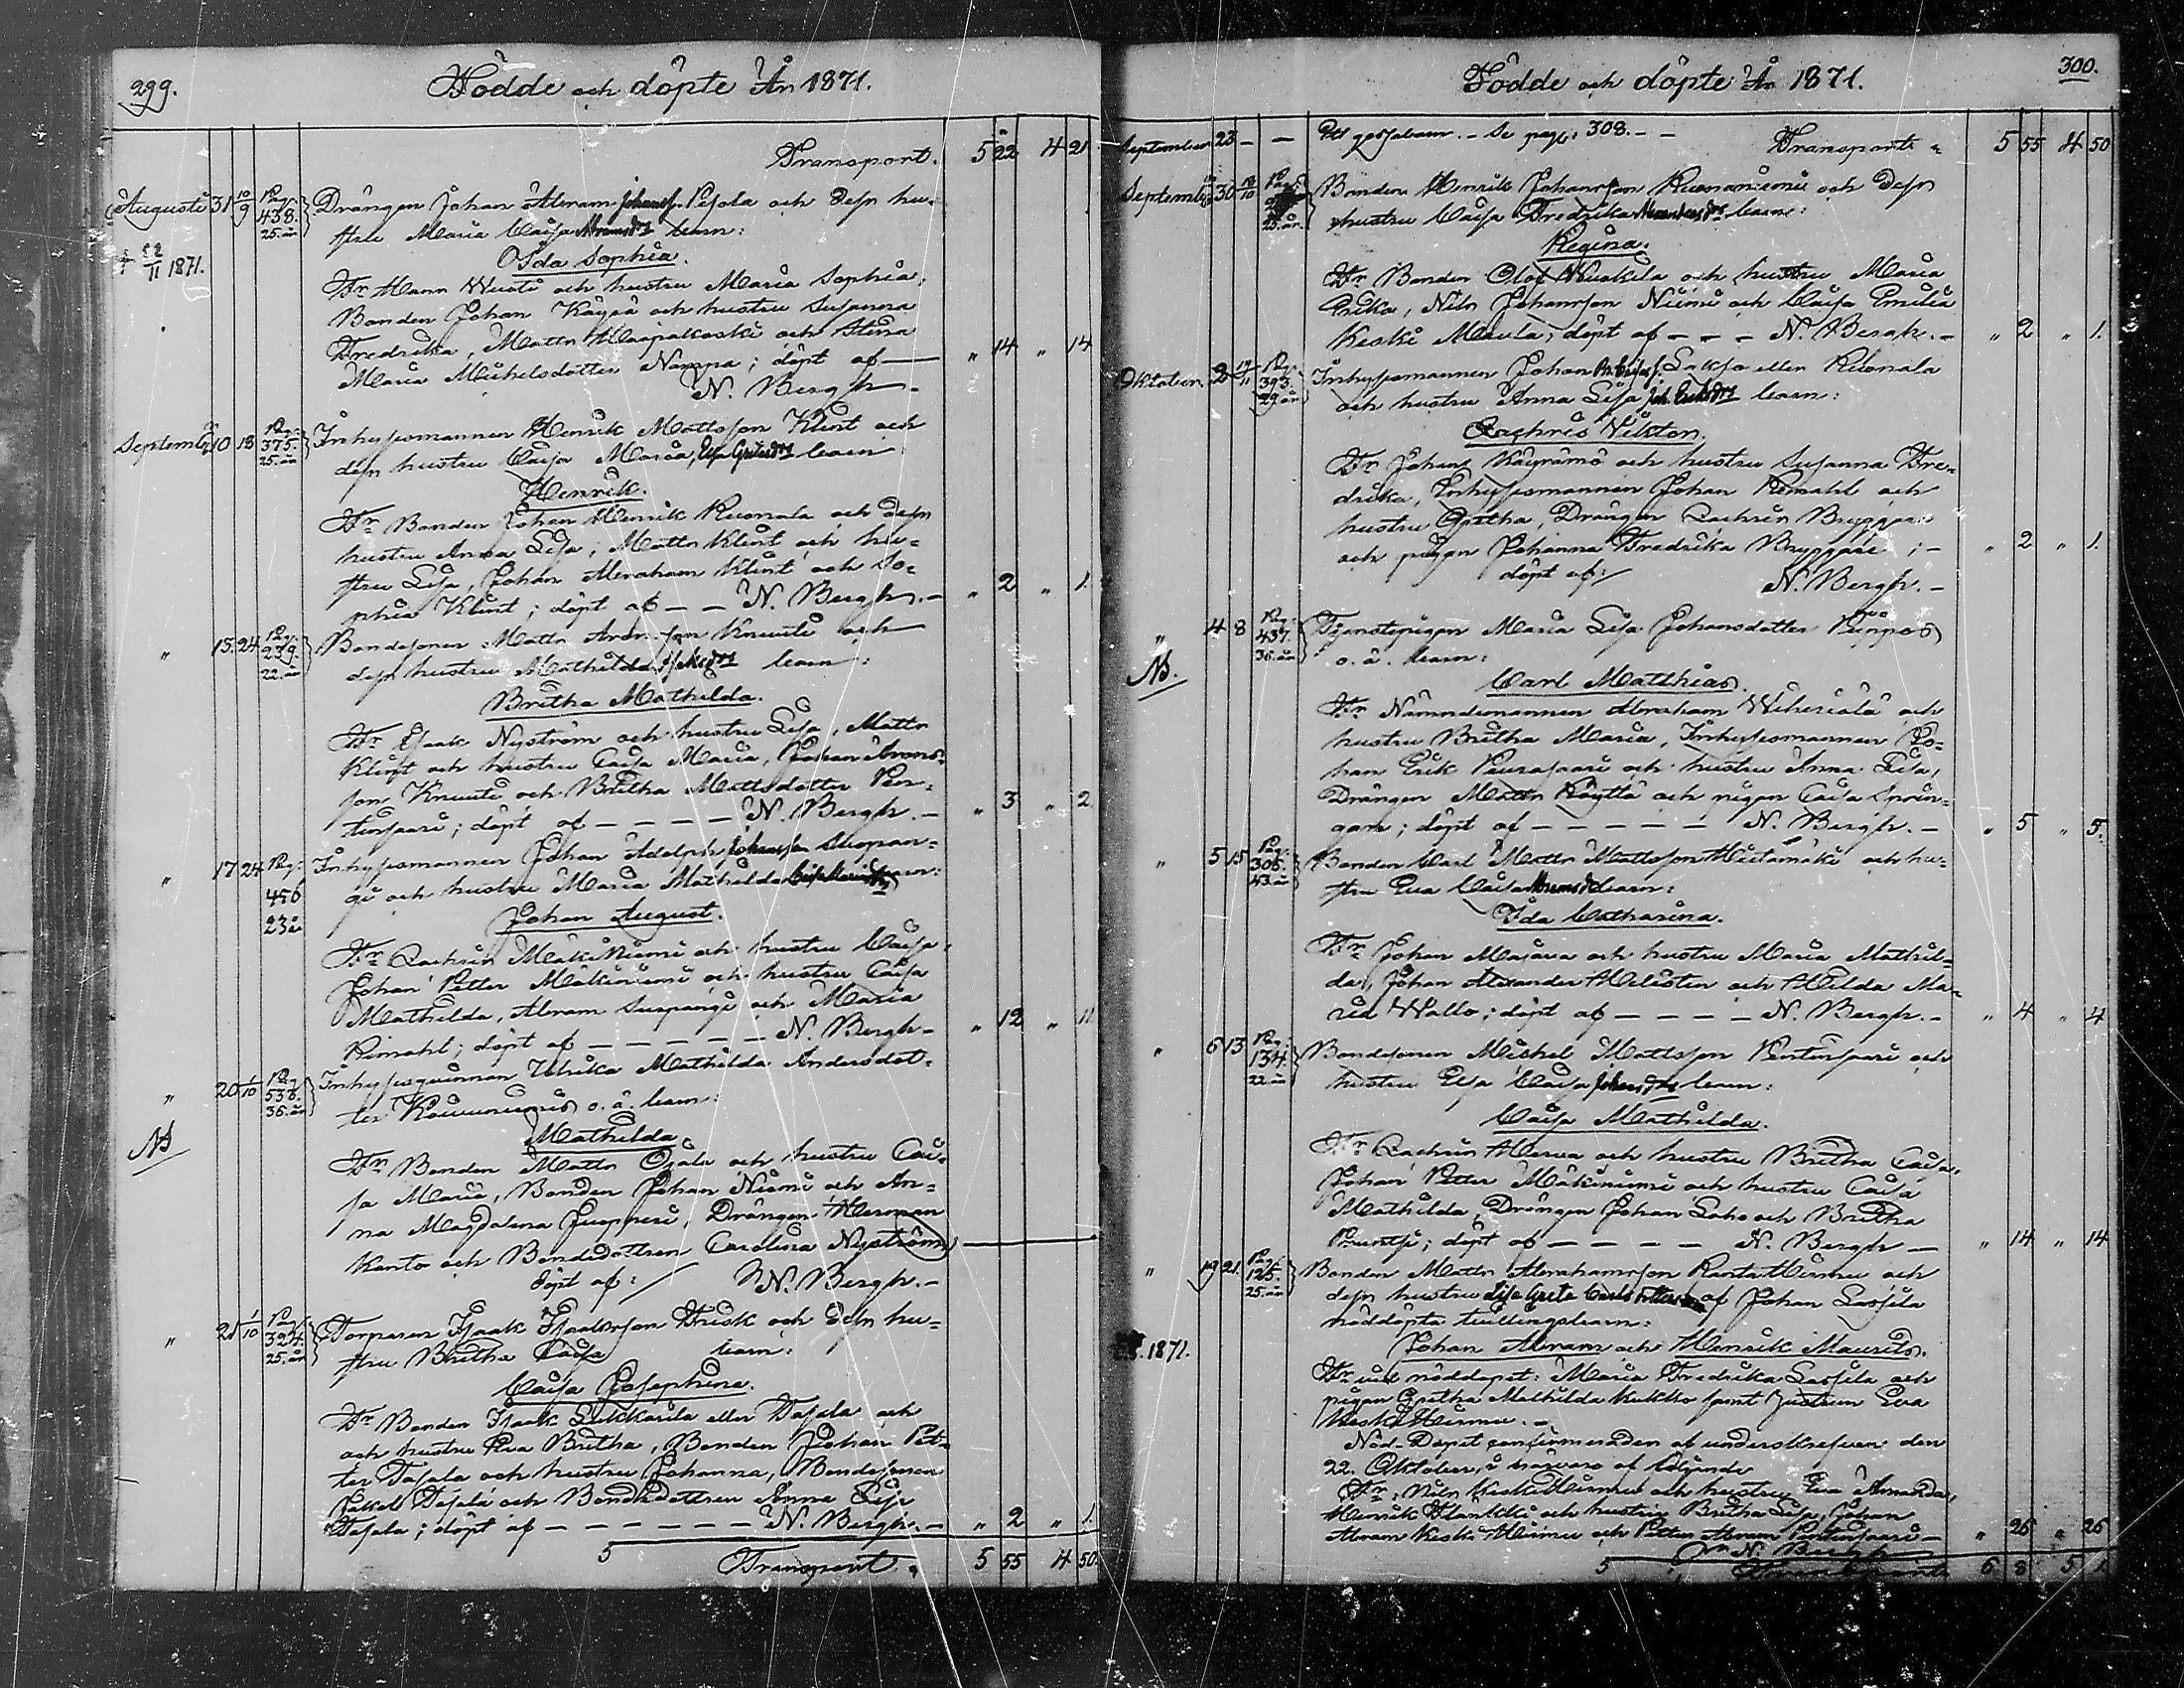 299.
Födde och döpte År 1871.
Transport. 5 22 4 21
Augusti 31 10/9 Pag: 438. 25. år Drängen Johan Abram Johanss. Pesola och dess hu-
stru Maria Caisa Abramsdr barn:
† 22/11 1871.
Ida Sophia.
Fr Mann Wuoti och hustru Maria Sophia,
Bonden Johan Käyrä och hustru Susanna
Fredrika, Matts Haapakoski och Stina
Maria Michelsdotter Nampa; döpt af — " 14 " 14
N. Bergh.-
September 10 18 Pag: 375. 25. år Inhysesmannen Henrik Mattsson Klint och
dess hustru Caisa Maria, barn
Henrik.
Fr Bonden Johan Henrik Ruonala och dess
hustru Anna Lisa; Matts Klint och hu-
stru Lisa, Johan Abraham Klint och So-
phia Klint; döpt af - - N. Bergh.- " 2 " 1.
" 15. 24. Pag: 239. 22. år Bondesonen Matts Knuuti och
dess hustru Mathilda barn:
Britha Mathilda.
Fr Isaak Nyström och hustru Lisa, Matts
Klint och hustru Caisa Maria, Johan Arons-
son Knuuti och Britha Mattsdotter Pen-
tinsaari; döpt af - - - - N. Bergh.- " 3 " 2
" 17 24 Pag: 456 23 år Inhysesmannen Johan Adolph Johansson Suopan-
gi och hustru Maria Mathilda barn:
Johan August.
Fr Zachris Mäkiniemi och hustru Caisa,
Johan Petter Mäkiniemi och hustru Caisa
Mathilda, Abram Suopangi och Maria
Rimahl; döpt af - - - - - N. Bergh- " 12 " 11
" 20 1/10 Pag. 538. 36. år Inhysesqvinnan Ulrika Mathilda Andersdot-
ter o. ä. barn:
NB
Mathilda.
Fr Bonden Matts Ojala och hustru Cai-
sa Maria, Bonden Johan Niemi och An-
na Magdalena Juopperi, Drängen Herman
Kanto och Bondedottren Carolina Nyström
döpt af: / N. Bergh.-
" 21 1/10 Pag. 324. 25. år Torparen Isaak Isaaksson Frisk och dess hu-
stru Britha Caisa barn:
Caisa Josephina.
Fr Bonden Isaak Lukkarila eller Tapala och
och hustru Eva Britha, Bonden Johan Pet-
ter Tapala och hustru Johanna, Bondesonen
Jakob Tapala och Bondedottren Anna Lisa
Tapala; döpt af - - - - - - N. Bergh.- " 2 " 1.
5
Transport. 5 55 4 50.
300.
Födde och döpte År 1871.
September 23 - - Ett gossebarn. - Se pag: 308. - - Transport " 5 55 4 50
September 30 10/10 Pag: 25. år. Bonden Henrik Johansson Ruonaniemi och dess
hustru Caisa Fredrika barn:
Regina.
Fr Bonden Olof Wuokila och hustru Maria
Erika, Nils Johansson Niemi och Caisa Emilia
Keski Maula; döpt af - - - N. Bergh.- " 2 " 1.
Oktober. 2 19/11 Pag. 393. 29 år Inhysesmannen Johan Laksjo eller Ruonala
och hustru Anna Lisa Joh. Eriksdr barn:
Zachris Viktor.
Fr Johan Käyrämö och hustru Susanna Fre-
drika, Inhysesmannen Johan Rimahl och
hustru Gretha, Drängen Zachris Bryggare
och pigan Johanna Fredrika Bryggare ;- " 2 " 1.
döpt af: / N. Bergh.-
" 4 8 Pag: 437. 36. år Tjenstepigan Maria Lisa Johansdotter Pippos
o. ä. barn:
NB.
Carl Matthias.
Fr Nämndemannen Abraham Wiheriälä och
hustru Britha Maria, Inhysesmannen Jo-
han Erik Peurasaari och hustru Anna Lisa,
Drängen Matts Köyttä och pigan Caisa Sprin-
gare; döpt af - - - - - N. Bergh.- " 5 " 5.
" 5 15 Pag. 305. 43. år Bonden Carl Matts Mattsson Hietamäki och hu-
stru Eva Caisa Abramsdr barn:
Ida Catharina.
Fr Johan Majava och hustru Maria Mathil-
da, Johan Alexander Helisten och Hilda Ma-
ria Wallo; döpt af - - - - N. Bergh.- " 4 " 4
" 6 13 Pag: 134. 22 år Bondesonen Michel Mattsson Pentinsaari och
hustru Eva Caisa Johansdr barn:
Caisa Mathilda.
Fr Zachris Herva och hustru Britha Caisa,
Johan Petter Mäkiniemi och hustru Caisa
Mathilda, Drängen Johan Laho och Britha
Pruntsi; döpt af - - - - N. Bergh - " 14 " 14
" 19 21. Pag. 125. 25. år Bonden Matts Abrahamsson Ranta Hirmu och
dess hustru Lisa Greta Carlsdotters af Johan Lassila
nöddöpta tvillingsbarn:
1871.
Johan Abram och Henrik Maurits.
Fr vid nöddopet: Maria Fredrika Lassila och
pigan Gretha Mathilda Kukko samt Justina Eva
Keski Hirmu.-
Nöd-Dopet confirmeraden af underskrefven den
22. Oktober, i närvaro af följande
Fr: Nils Keski Hirmu och hustru Eva Amanda,
Henrik Hankki och hustru Britha Lisa, Johan
Abram Keski Hirmu och Petter Abram Pentinsaari- " 26 " 26
N. Bergh
5 Transport 6 8 5 1